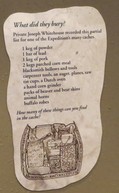 What did they bury?
Private Joseph Whitehouse recorded this partial
list for one of the Expedition's many caches.
1 keg of powder
1 bar of lead
1 keg of pork
2 kegs parched corn meal
blacksmith bellows and tools
carpenter tools, an auger, planes, saw
rat traps, a Dutch oven
a hand corn grinder
packs of beaver and bear skins
animal horns
buffalo robes
How many of these things can you find
on the cache?